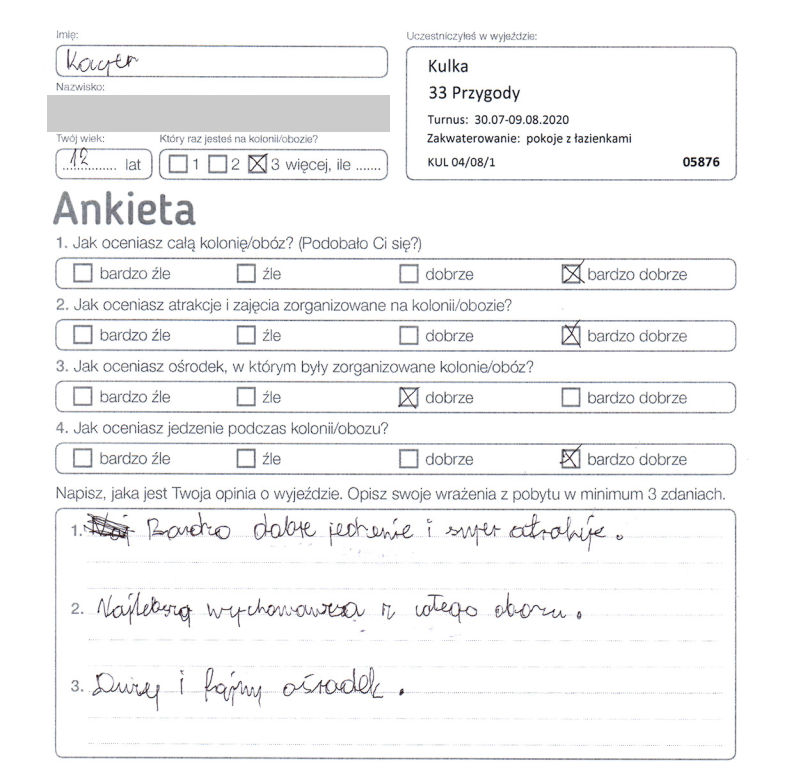 Imię:
Kacper
Uczestniczyłeś w wyjeździe:
Kulka
33 Przygody
Turnus: 30.07-09.08.2020
Zakwaterowanie: pokoje z łazienkami
KUL 04/08/1 05876
Nazwisko:
Twój wiek:
12 lat
Który raz jesteś na kolonii/obozie?
1 2 3 więcej, ile .......
Ankieta
1. Jak oceniasz całą kolonię/obóz? (Podobało Ci się?)
bardzo źle źle dobrze bardzo dobrze
2. Jak oceniasz atrakcje i zajęcia zorganizowane na kolonii/obozie?
bardzo źle źle dobrze bardzo dobrze
3. Jak oceniasz ośrodek, w którym były zorganizowane kolonie/obóz?
bardzo źle źle dobrze bardzo dobrze
4. Jak oceniasz jedzenie podczas kolonii/obozu?
bardzo źle źle dobrze bardzo dobrze
Napisz, jaka jest Twoja opinia o wyjeździe. Opisz swoje wrażenia z pobytu w minimum 3 zdaniach.
1. Bardzo dobre jedzenie i super atrakcje.
2. wychowawcza z całego obozu.
3. Duży i fajny ośrodek.